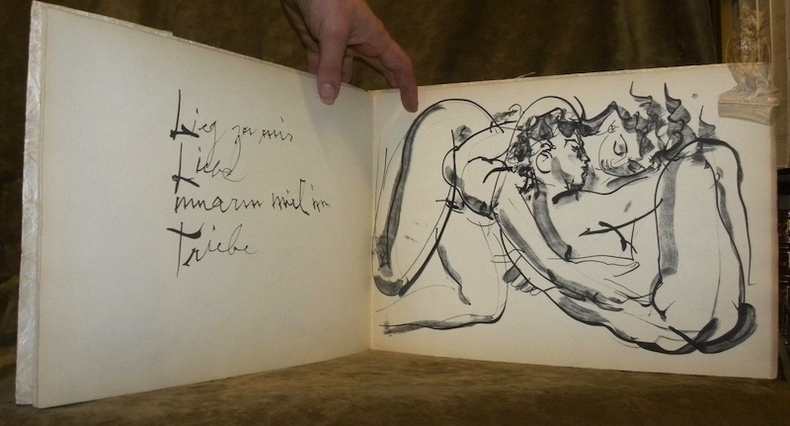 Lieg zu mir
Liebe
umarm mich im
Triebe